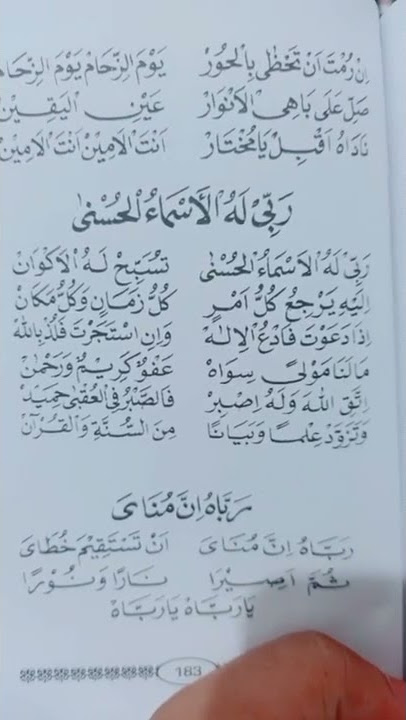 اِنْ رُمْتَ اَنْ تَحْظٰى بِالْحُوْرْ يَوْمَ الزِّحَامْ يَوْمَ الزِّحَامْ
صَلِّ عَلَى بَاهِى الْاَنْوَارْ عَيْنِ الْيَقِيْنْ
نَادَاهُ اَقْبِلْ يَا مُخْتَارْ اَنْتَ الْاَمِيْنْ اَنْتَ الْاَمِيْنْ
رَبِّيْ لَهُ الْاَسْمَاءُ الْحُسْنٰى
رَبِّيْ لَهُ الْاَسْمَاءُ الْحُسْنٰى تُسَبِّحُ لَهُ الْاَكْوَانْ
اِلَيْهِ يَرْجِعُ كُلُّ اَمْرٍ كُلُّ زَمَانٍ وَكُلُّ مَكَانْ
اِذَا دَعَوْتَ فَادْعُ الْاِلٰهْ وَاِنِ اسْتَجَرْتَ فَلُذْ بِاللهْ
مَا لَنَا مَوْلًى سِوَاهْ عَفُوٌّ كَرِيْمٌ وَرَحْمٰنْ
اِتَّقِ اللهَ وَلَهُ اصْبِرْ فَالصَّبْرُ فِى الْعُقْبٰى حَمِيْدْ
وَتَزَوَّدْ عِلْمًا وَبَيَانًا مِنَ السُّنَّةِ وَالْقُرْآنْ
رَبَّاهُ اِنَّ مُنَايَ
رَبَّاهُ اِنَّ مُنَايَ اَنْ تَسْتَقِيْمَ خُطَايَ
ثُمَّ اَصِيْرَا نَارًا وَنُوْرًا
يَا رَبَّاهْ يَا رَبَّاهْ
183